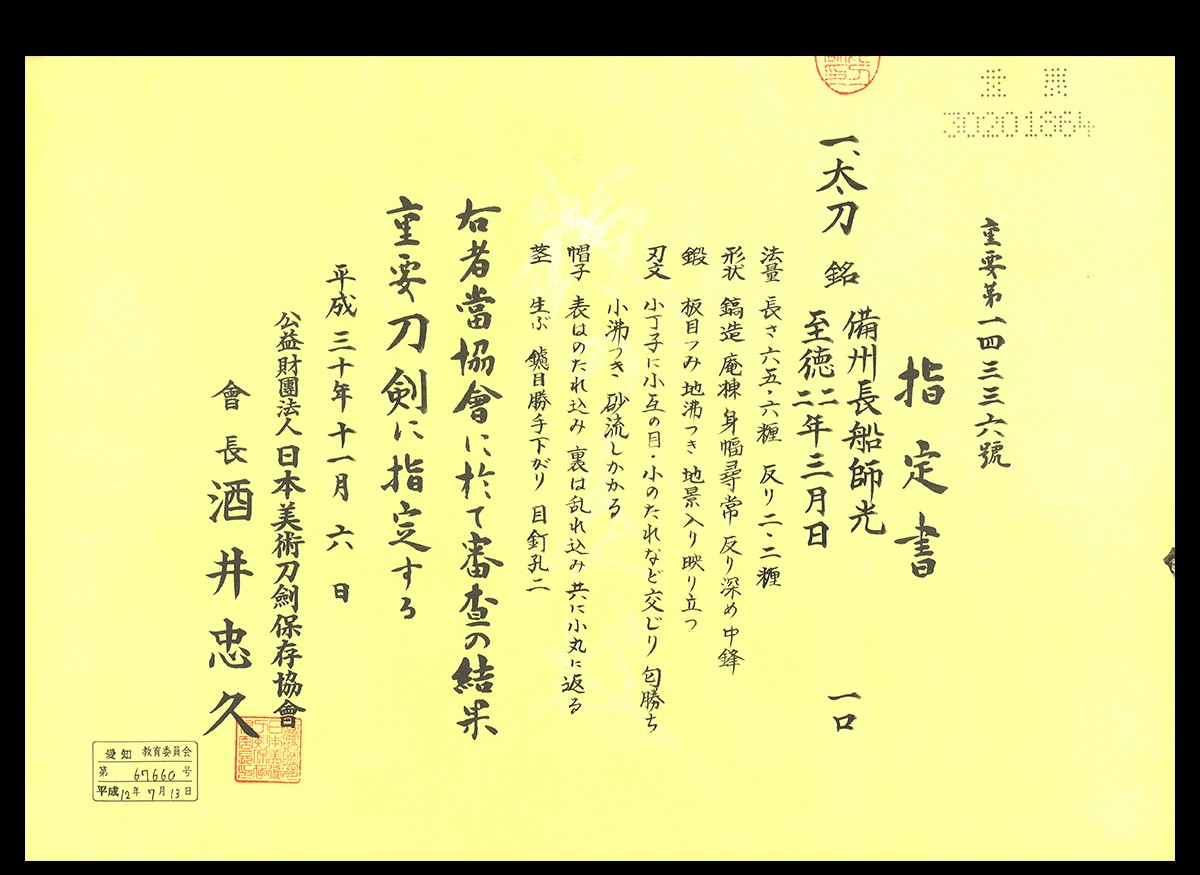 重要
30201864
重要第一四三三六號
指定書
一、太刀 銘 備州長船師光 一口
至徳二二年三月日
法量 長さ六五・六糎 反り二・二糎
形状 鎬造 庵棟 身幅尋常 反り深め 中鋒
鍛 板目つみ 地沸つき 地景入り 映り立つ
刃文 小丁子に小互の目・小のたれなど交じり 匂勝ち
小沸つき 砂流しかかる
帽子 表はのたれ込み 裏は乱れ込み 共に小丸に返る
茎 生ぶ 鑢目勝手下がり 目釘孔二
右者當協會に於て審査の結果
重要刀剣に指定する
平成三十年十一月六日
公益財團法人日本美術刀劍保存協會
會長 酒井忠久
愛知 教育委員会
第 67660 号
平成12年7月13日